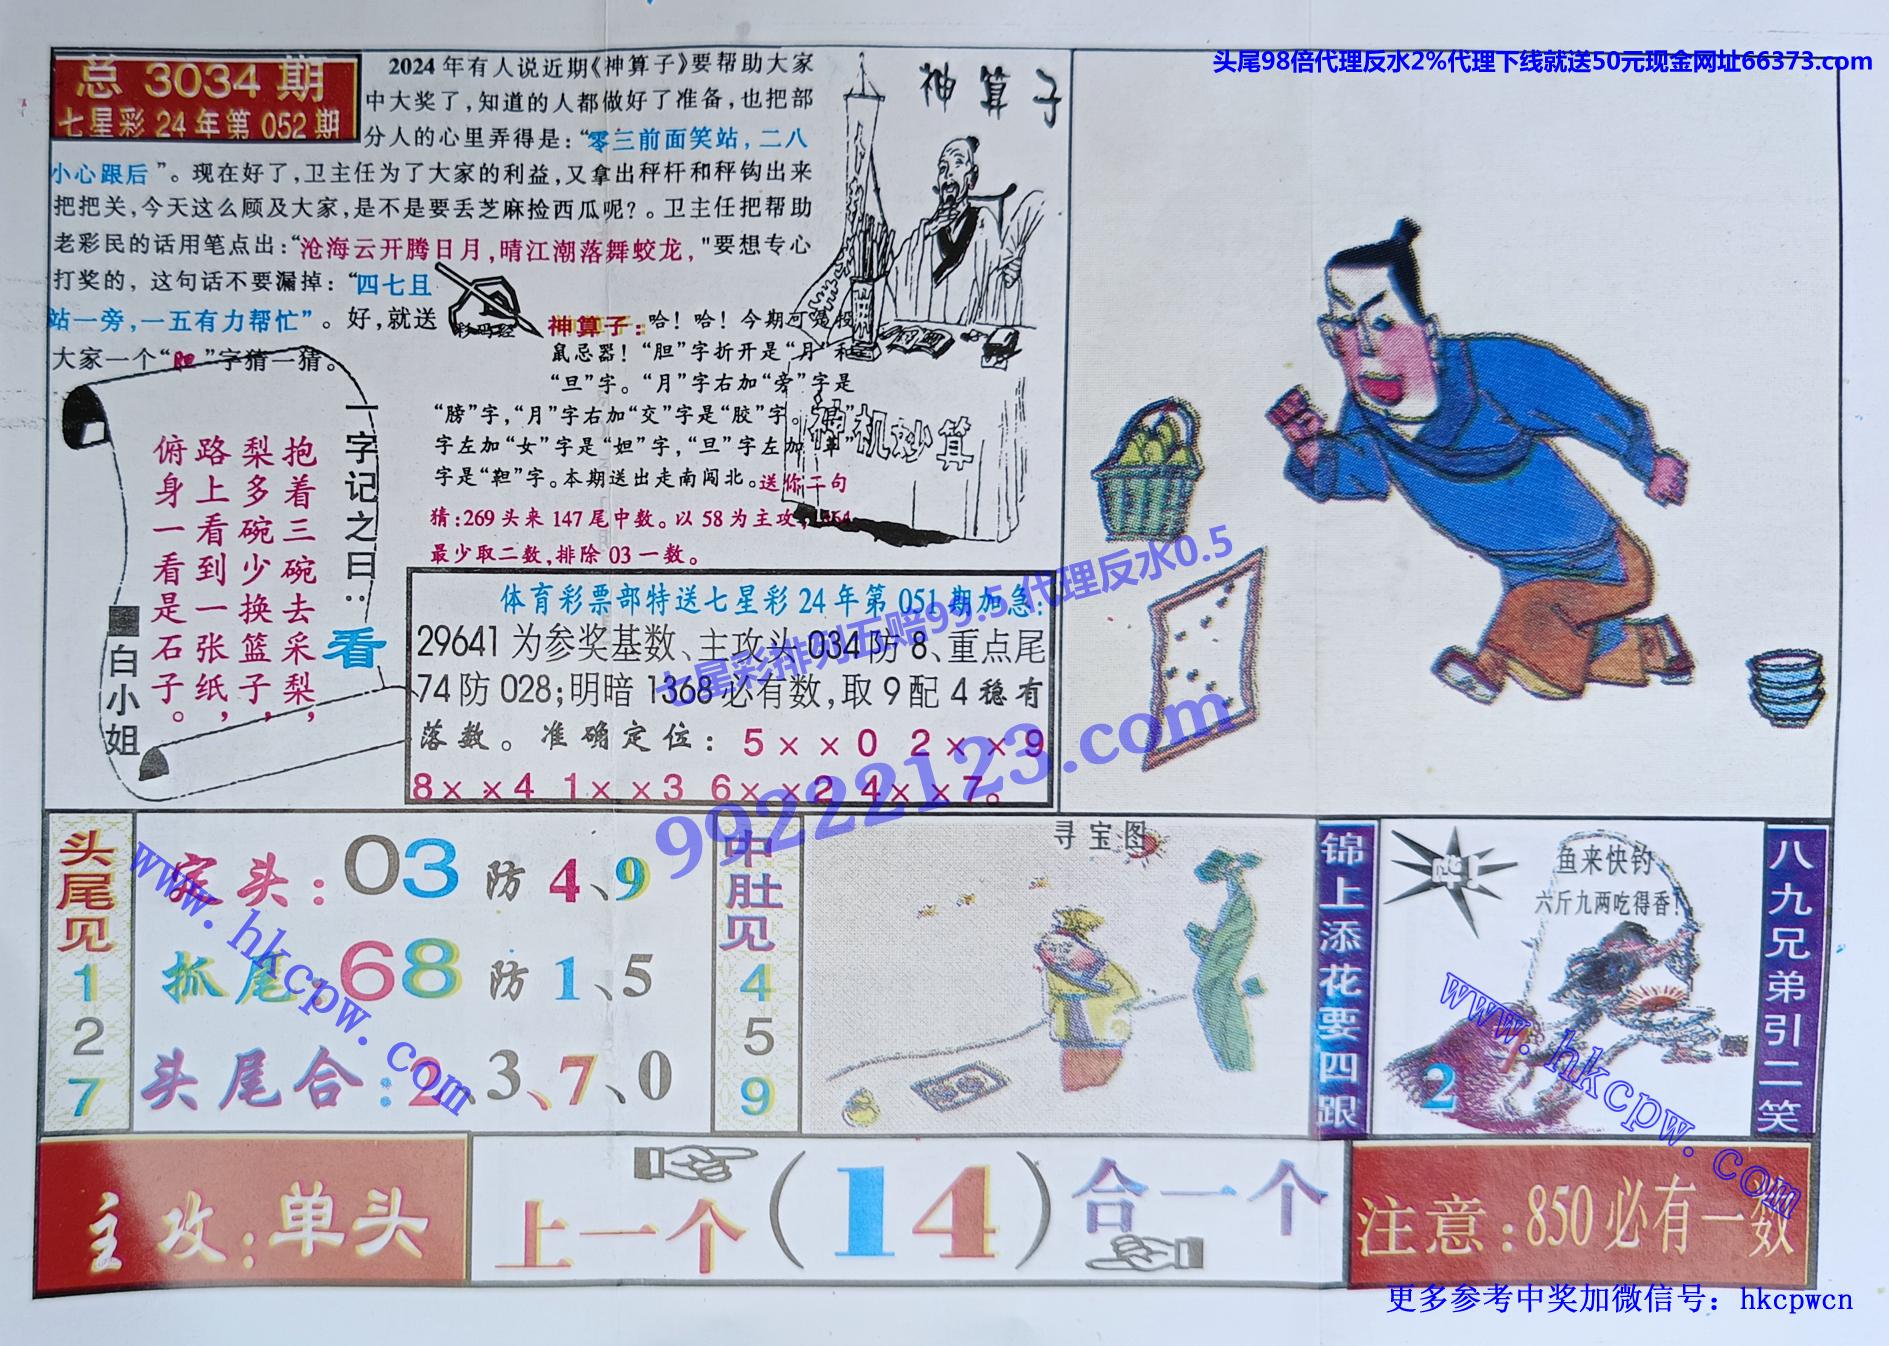 头尾98倍代理反水2%代理下线就送50元现金网址66373.com
总 3034 期
七星彩 24 年第 052 期
2024 年有人说近期《神算子》要帮助大家
中大奖了，知道的人都做好了准备，也把部
分人的心里弄得是：“零三前面笑站，二八
小心跟后”。现在好了，卫主任为了大家的利益，又拿出秤杆和秤钩出来
把把关，今天这么顾及大家，是不是要丢芝麻捡西瓜呢？。卫主任把帮助
老彩民的话用笔点出：“沧海云开腾日月，晴江潮落舞蛟龙，"要想专心
打奖的，这句话不要漏掉：“四七且
站一旁，一五有力帮忙”。好，就送
大家一个“胆”字猜一猜。
彩码经
神算子
神机妙算
神算子：哈！哈！今期可是投
鼠忌器！“胆”字折开是“月”和
“旦”字。“月”字右加“旁”字是
“膀”字，“月”字右加“交”字是“胶”字。
字左加“女”字是“妲”字，“旦”字左加“革”
字是“靼”字。本期送出走南闯北。送你二句
猜：269 头来 147 尾中数。以 58 为主攻，
最少取二数，排除 03 一数。
一字记之曰：看
抱着三碗去采梨，
梨多碗少换篮子，
路上看到一张纸，
俯身一看是石子。
白小姐
体育彩票部特送七星彩 24 年第 051 期加急：
29641 为参奖基数、主攻头 034 防 8、重点尾
74 防 028；明暗 1368 必有数，取 9 配 4 稳有
落数。准确定位：5××0 2××9
8××4 1××3 6××2 4××7。
七星彩排列五赔99.5 代理反水0.5
99222123.com
头尾见127
定头：03 防 4、9
抓尾：68 防 1、5
头尾合：2、3、7、0
中肚见459
寻宝图
锦上添花要四跟
鱼来快钓
六斤九两吃得香！
2
八九兄弟引二笑
www.hkcpw.com
www.hkcpw.com
主攻：单头
上一个（14）合一个
注意：850 必有一数
更多参考中奖加微信号：hkcpwcn